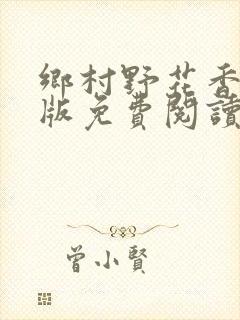 鄉村野花香
版免費閱讀
曾小賢